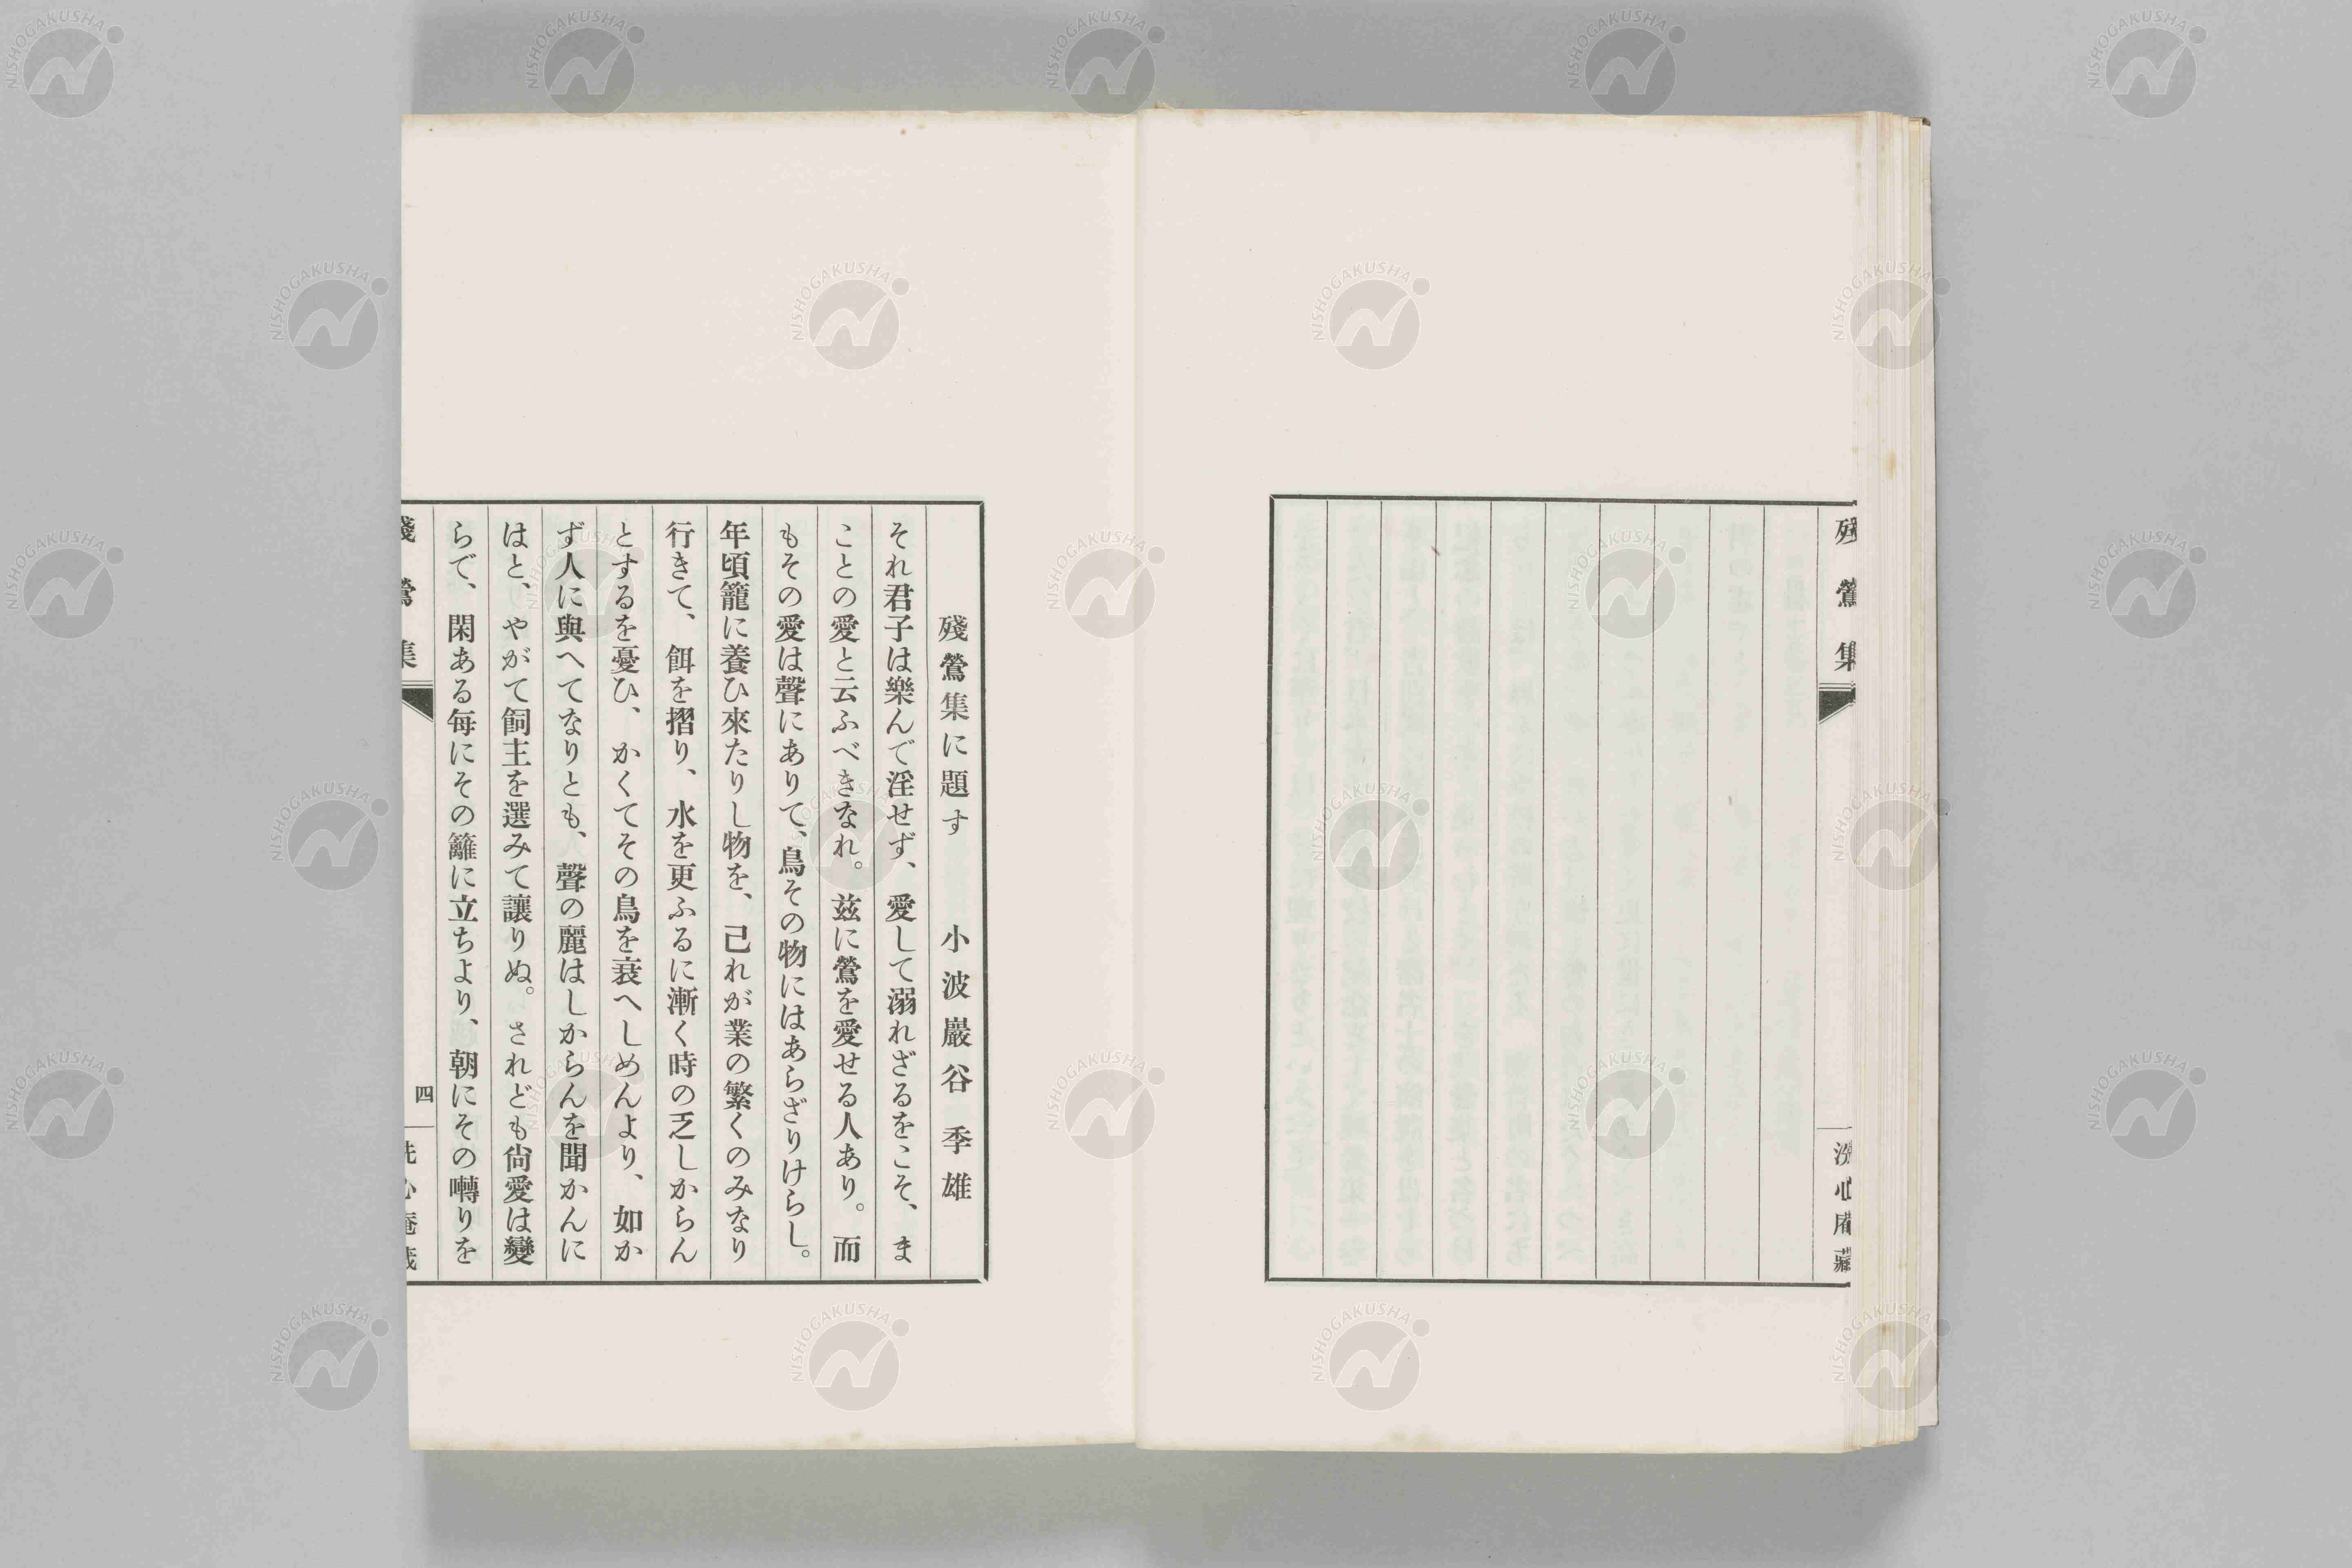 殘鶯集
洗心庵藏
殘鶯集に題す　小波巖谷季雄
それ君子は樂んで淫せず、愛して溺れざるをこそ、ま
ことの愛と云ふべきなれ。玆に鶯を愛せる人あり。而
もその愛は聲にありて、鳥その物にはあらざりけらし。
年頃籠に養ひ來たりし物を、己れが業の繁くのみなり
行きて、餌を摺り、水を更ふるに漸く時の乏しからん
とするを憂ひ、かくてその鳥を衰へしめんより、如か
ず人に與へてなりとも、聲の麗はしからんを聞かんに
はと、やがて飼主を選みて讓りぬ。されども尙愛は變
らで、閑ある每にその籬に立ちより、朝にその囀りを
殘鶯集
四
洗心庵藏
NISHOGAKUSHA